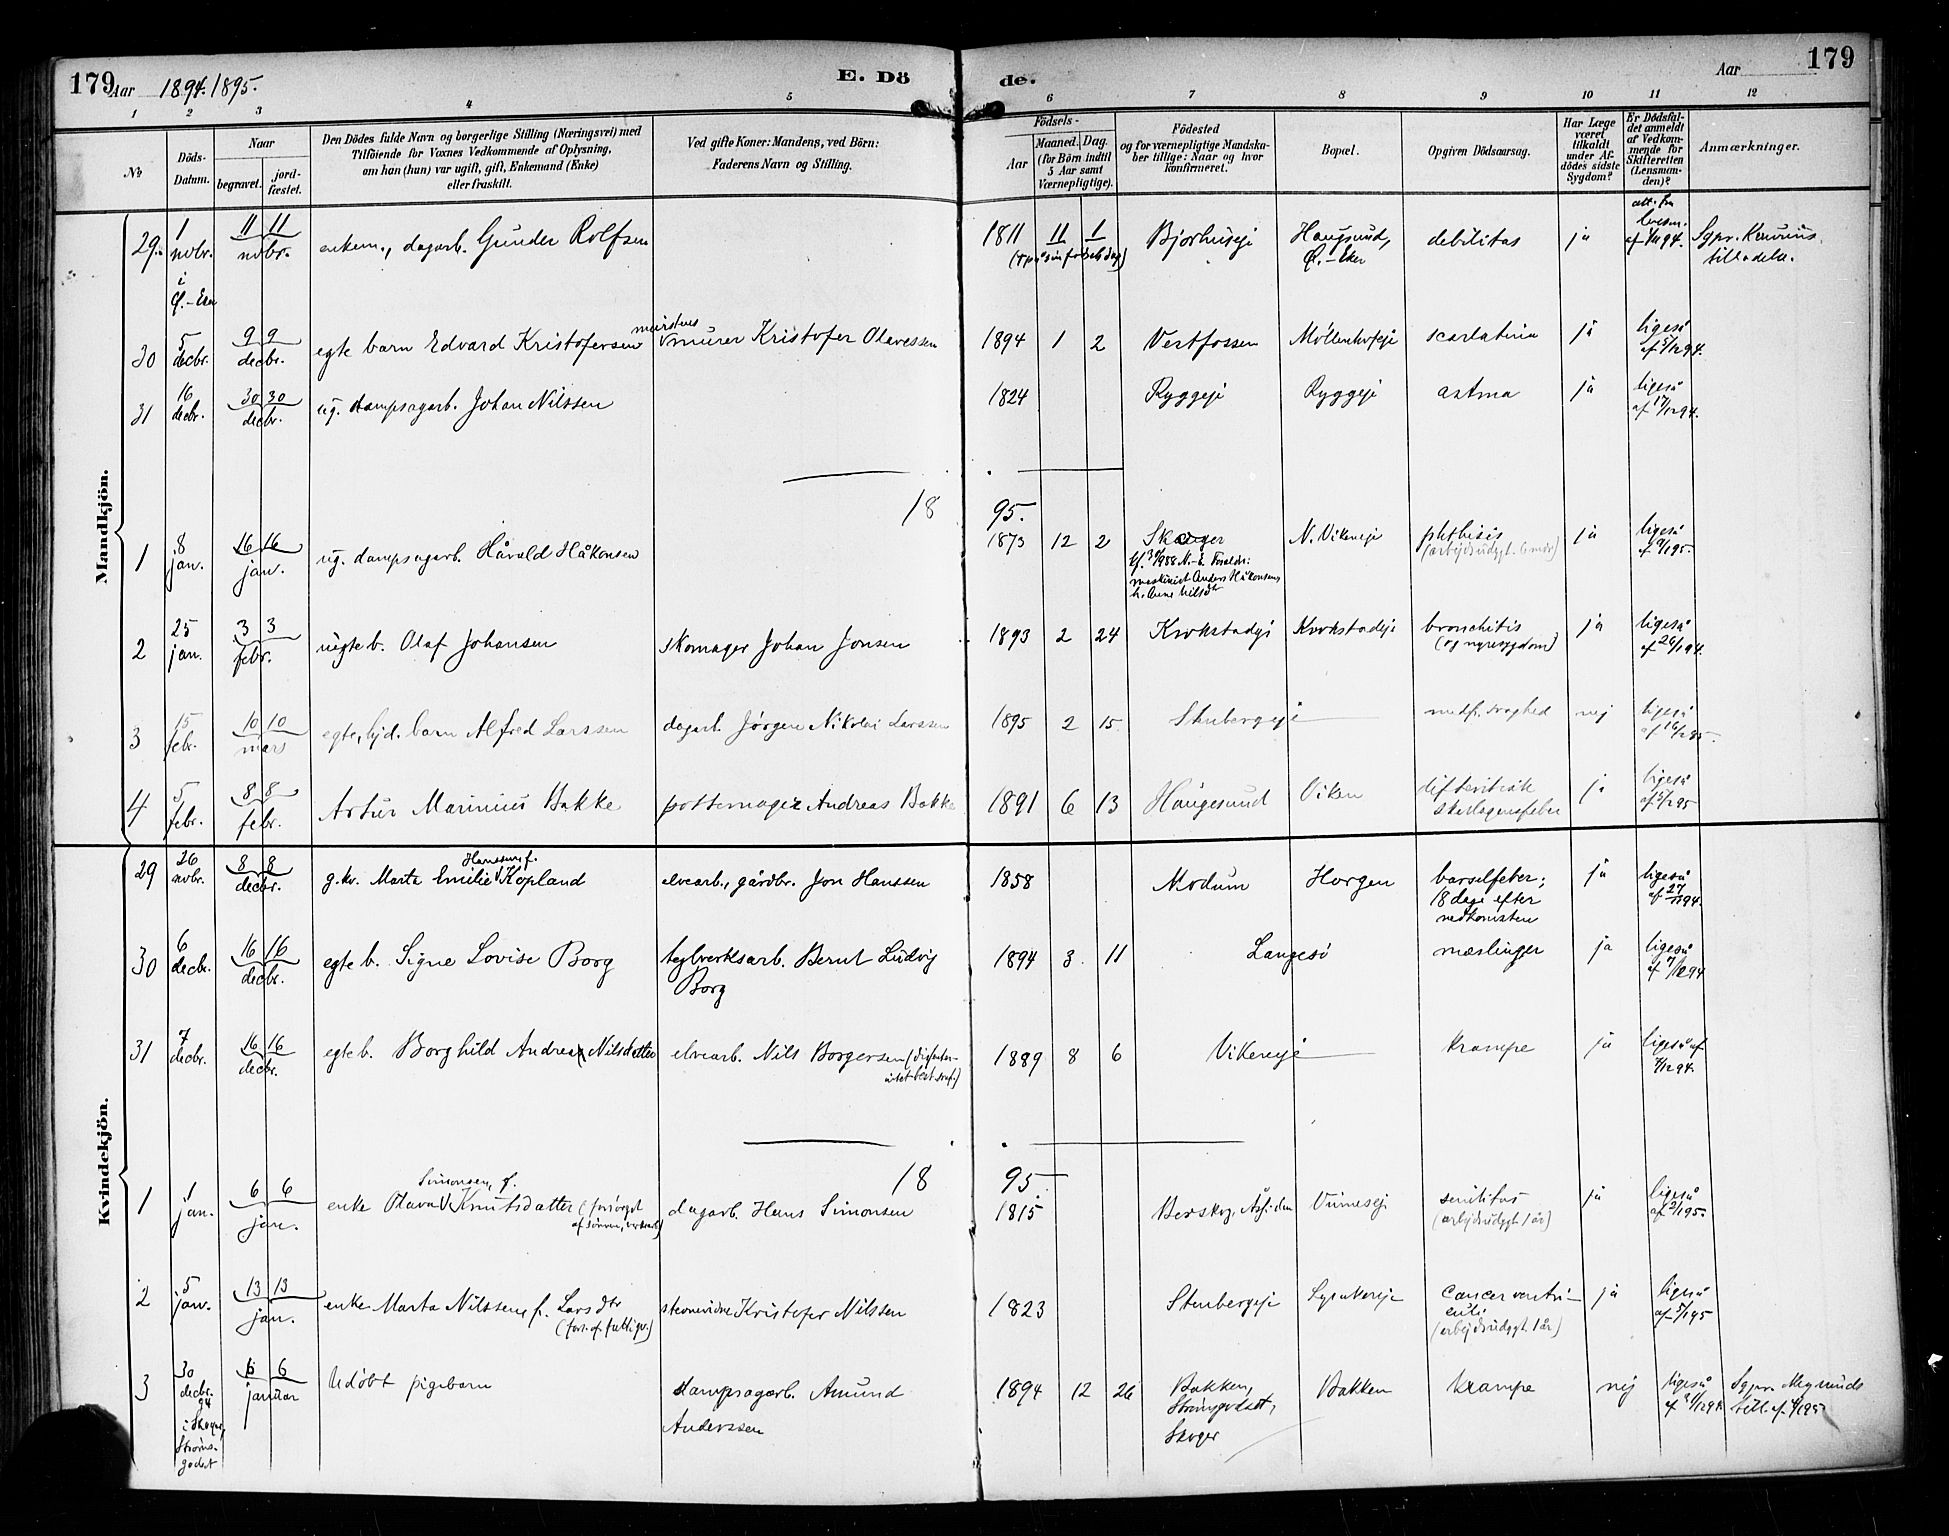 179 Aar 1894. 1895. E. Dö de. Aar 179
1 2 3 4 5 6 7 8 9 10 11 12
No
Döds-Datum.
Naar begravet. jordfæstet.
Den Dödes fulde Navn og borgerlige Stilling (Næringsvei) med
Tilföiende for Voxnes Vedkommende af Oplysning,
om han (hun) var ugift, gift, Enkemand (Enke)
eller fraskilt.
Ved gifte Koner: Mandens, ved Börn:
Faderens Navn og Stilling.
Födsels-
Aar Maaned. Dag.
(for Börn indtil 5 Aar samt Værnepligtige).
Födested
og for værnepligtige Mandskaber tillige: Naar og hvor konfirmeret.
Bopæl.
Opgiven Dödsaarsag.
Har Læge været tilkaldt under Afdödes sidste Sygdom?
Er Dödsfaldet anmeldt af Vedkommende for Skifteretten (Lensmanden)?
Anmærkninger.
Mandkjön.
29 1 novbr. i Ø.-Eker 11 11 novbr. enkem., dagarb. Gunder Rolfsen 1811 11 1 Bjørhuseje Haugsund, Ø.-Eker debilitas ja att. fra lensm.
30 5 decbr. 9 9 decbr. egte barn Edvard Kristofersen murer Kristofer Olavessen 1894 1 2 Vestfossen Möllenhofeje scarlatina ja ligeså af 5/12 94.
31 16 decbr. 30 30 decbr. ug. dampsagarb. Johan Nilssen 1824 Ryggeje Ryggeje astma ja ligeså af 17/12 94.
18 95.
1 8 jan. 16 16 jan. ug. dampsagarb. Håvald Håkonsen 1873 12 2 Skoger N. Vikeneje phthisis ja ligeså af 9/1 95.
maskinist Anders Håkonsen,
2 25 jan. 3 3 febr. uegte b. Olaf Johansen skomager Johan Jonsen 1893 2 24 Krokstadeje Krokstadeje bronchitis (og nyresygdom) ja ligeså af 26/1 94.
3 15 febr. 10 10 mars egte, hjd. barn Alfred Larssen dagarb. Jørgen Nikolai Larssen 1895 2 15 Stenbergeje medf. svaghed nej ligeså af 16/2 95.
4 5 febr. 8 8 febr. Artur Marinius Bakke pottemager Andreas Bakke 1891 6 13 Haugesund Viken difteritisk skarlagensfeber ja ligeså af 5/2 95
Kvindekjön.
29 26 novbr. 8 8 decbr. g. kv. Marta Emilie Hanssen, f. Kopland elvearb., gårdbr. Jon Hanssen 1858 Modum Horgen barselfeber; 18 dage efter nedkomsten ja ligeså af 27/11 94.
30 6 decbr. 16 16 decbr. egte b. Signe Lovise Borg teglverksarb. Bernt Ludvig Borg 1894 3 11 Langesö mæslinger ja ligeså af 7/12 94
31 7 decbr. 16 16 decbr. egte b. Borghild Andrea Nilsdatter elvearb. Nils Borgersen 1889 8 6 Vikeneje krampe ja ligeså af
18 95
1 1 jan. 6 6 jan. enke Olava Simonsen, f. Knutsdatter (forsörget af sønnen, dagarb. Hans Simonsen 1815 ja ligeså af 2/1 95.
2 5 jan. 13 13 jan. enke Marta Nilssen, f. Larsdtr (fors. af fattigv.) Kristofer Nilssen 1823 Stenbergeje cancer ventriculi (arbejdsudygt. 1 år) ja ligeså af 5/1 95
3 30 decbr. 94 i Skoger, Strømsgodset 6 6 januar Udøbt pigebarn dampsagarb. Amund Anderssen 1894 12 26 Bakken, Strömsgodset, Skoger Bakken krampe nej ligeså